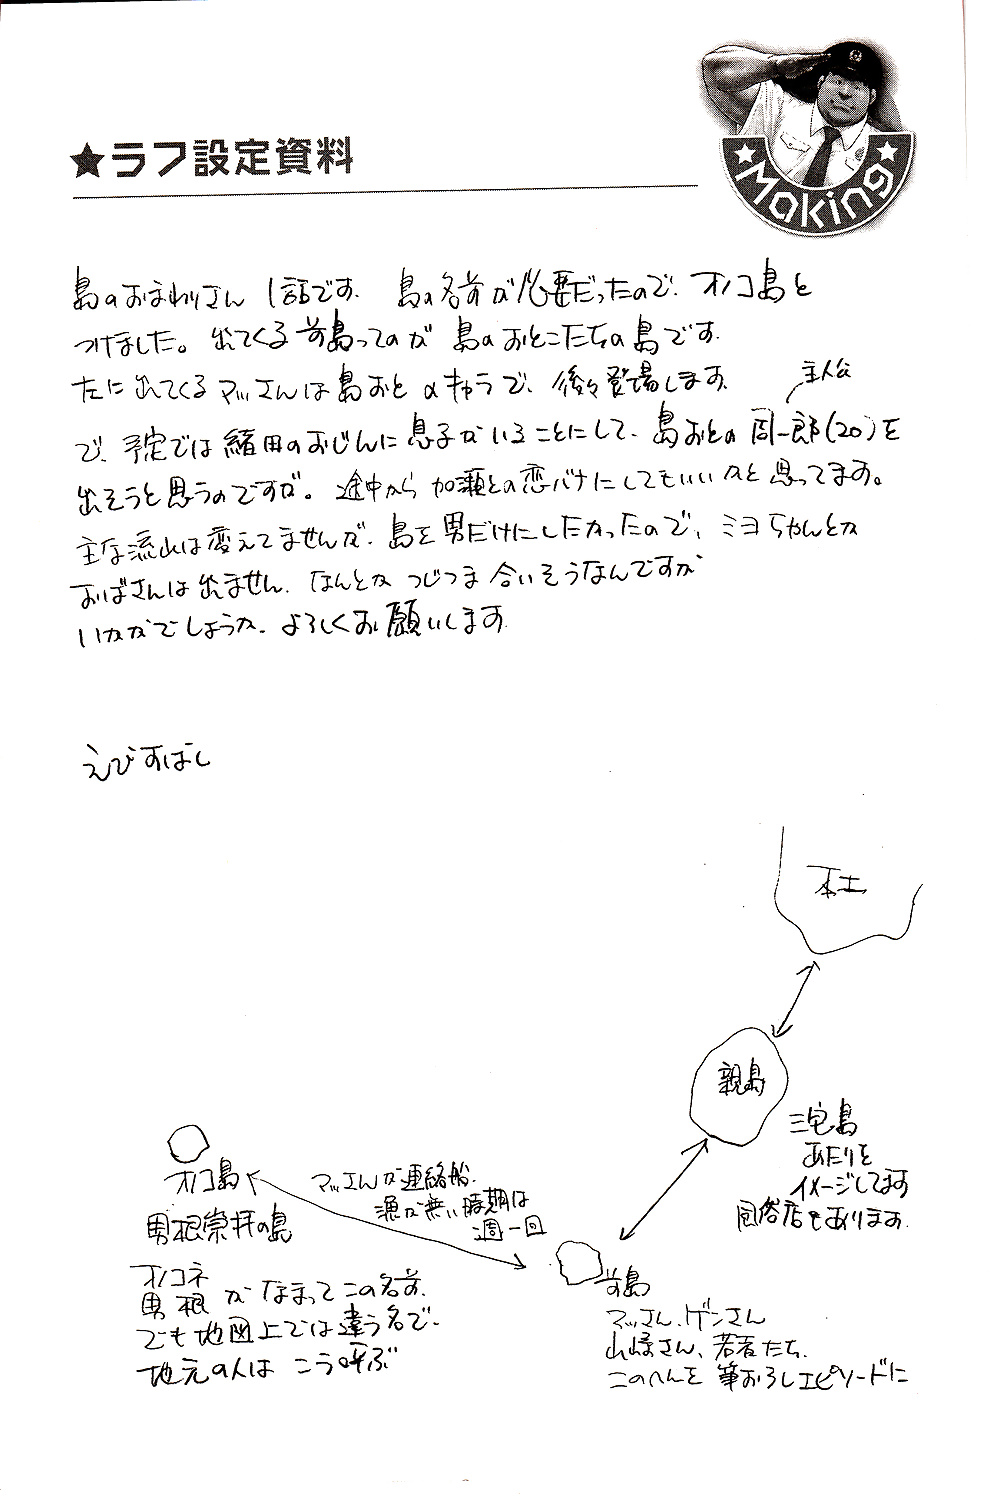 ★ラフ設定資料
★Making★
島のおまわりさん 1話です. 島の名前が必要だったので、オノコ島と
つけました。出てくる前島ってのが 島のおとこたちの島です.
たに出てくるマッさんは島おとのキャラで、後々登場します.
主人公
で、予定では緒田のおじんに息子がいることにして、島おとの周一郎(20)を
出そうと思うのですが。途中から加瀬との恋バナにしてもいいかと思ってます。
主な流れは変えてませんが、島を男だけにしたかったので、ミヨちゃんとか
おばさんは出ません. なんとかつじつま合いそうなんですが
いかがでしょうか. よろしくお願いします.
えびすばし
本土
親島
三宅島
あたりを
イメージしてます
風俗店もあります.
オノコ島
マッさんが連絡船.
漁が無い時期は
週一回
男根崇拝の島
オノコネ
男根がなまってこの名前.
でも地図上では違う名で.
地元の人はこう呼ぶ
前島
マッさん、ゲンさん
山崎さん、若者たち.
このへんを筆おろしエピソードに